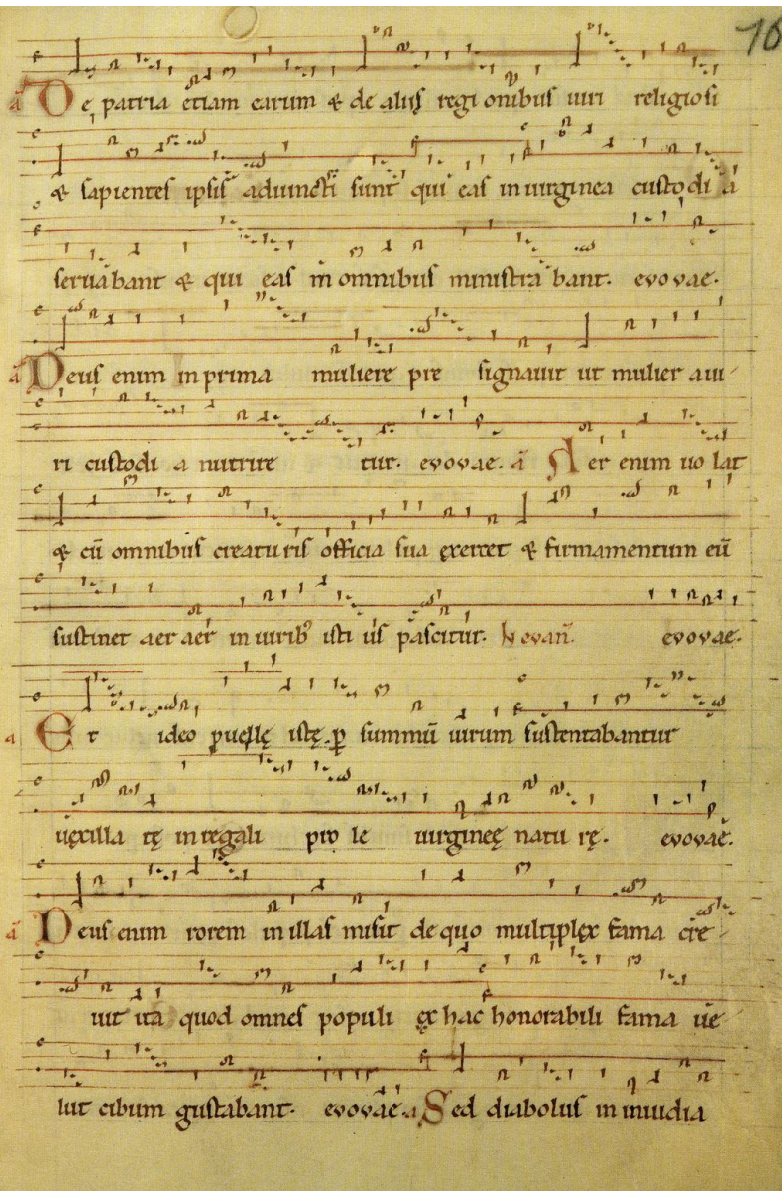 16
a̅ De patria etiam earum & de aliis regionibus uiri religiosi
& sapientes ipsis adiuncti sunt qui eas in uirginea custodia
seruabant & qui eas in omnibus ministrabant. evovae.
a̅ Deus enim in prima muliere presignauit ut mulier a ui-
ri custodia nutriretur. evovae. a̅ Aer enim uolat
& cu̅ omnibus creaturis officia sua exercet & firmamentum eu̅
sustinet aer aer in uirib᾽ istius pascitur. evovae.
a Et ideo puellę istę p̱ summu̅ uirum sustentabantur
uexillatę in regali prole uirgineę naturę. evovae.
a̅ Deus enim rorem in illas misit de quo multiplex fama cre-
uit ita quod omnes populi ex hac honorabili fama ue-
lut cibum gustabant. evovae. a. Sed diabolus in inuidia